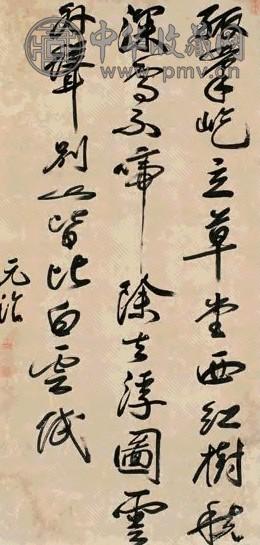 孤峯屹立草堂西紅樹秋
深鳥不啼除去浮圖雲
外聳别山皆比白雲低
元治
中华收藏网
www.pmv.cn